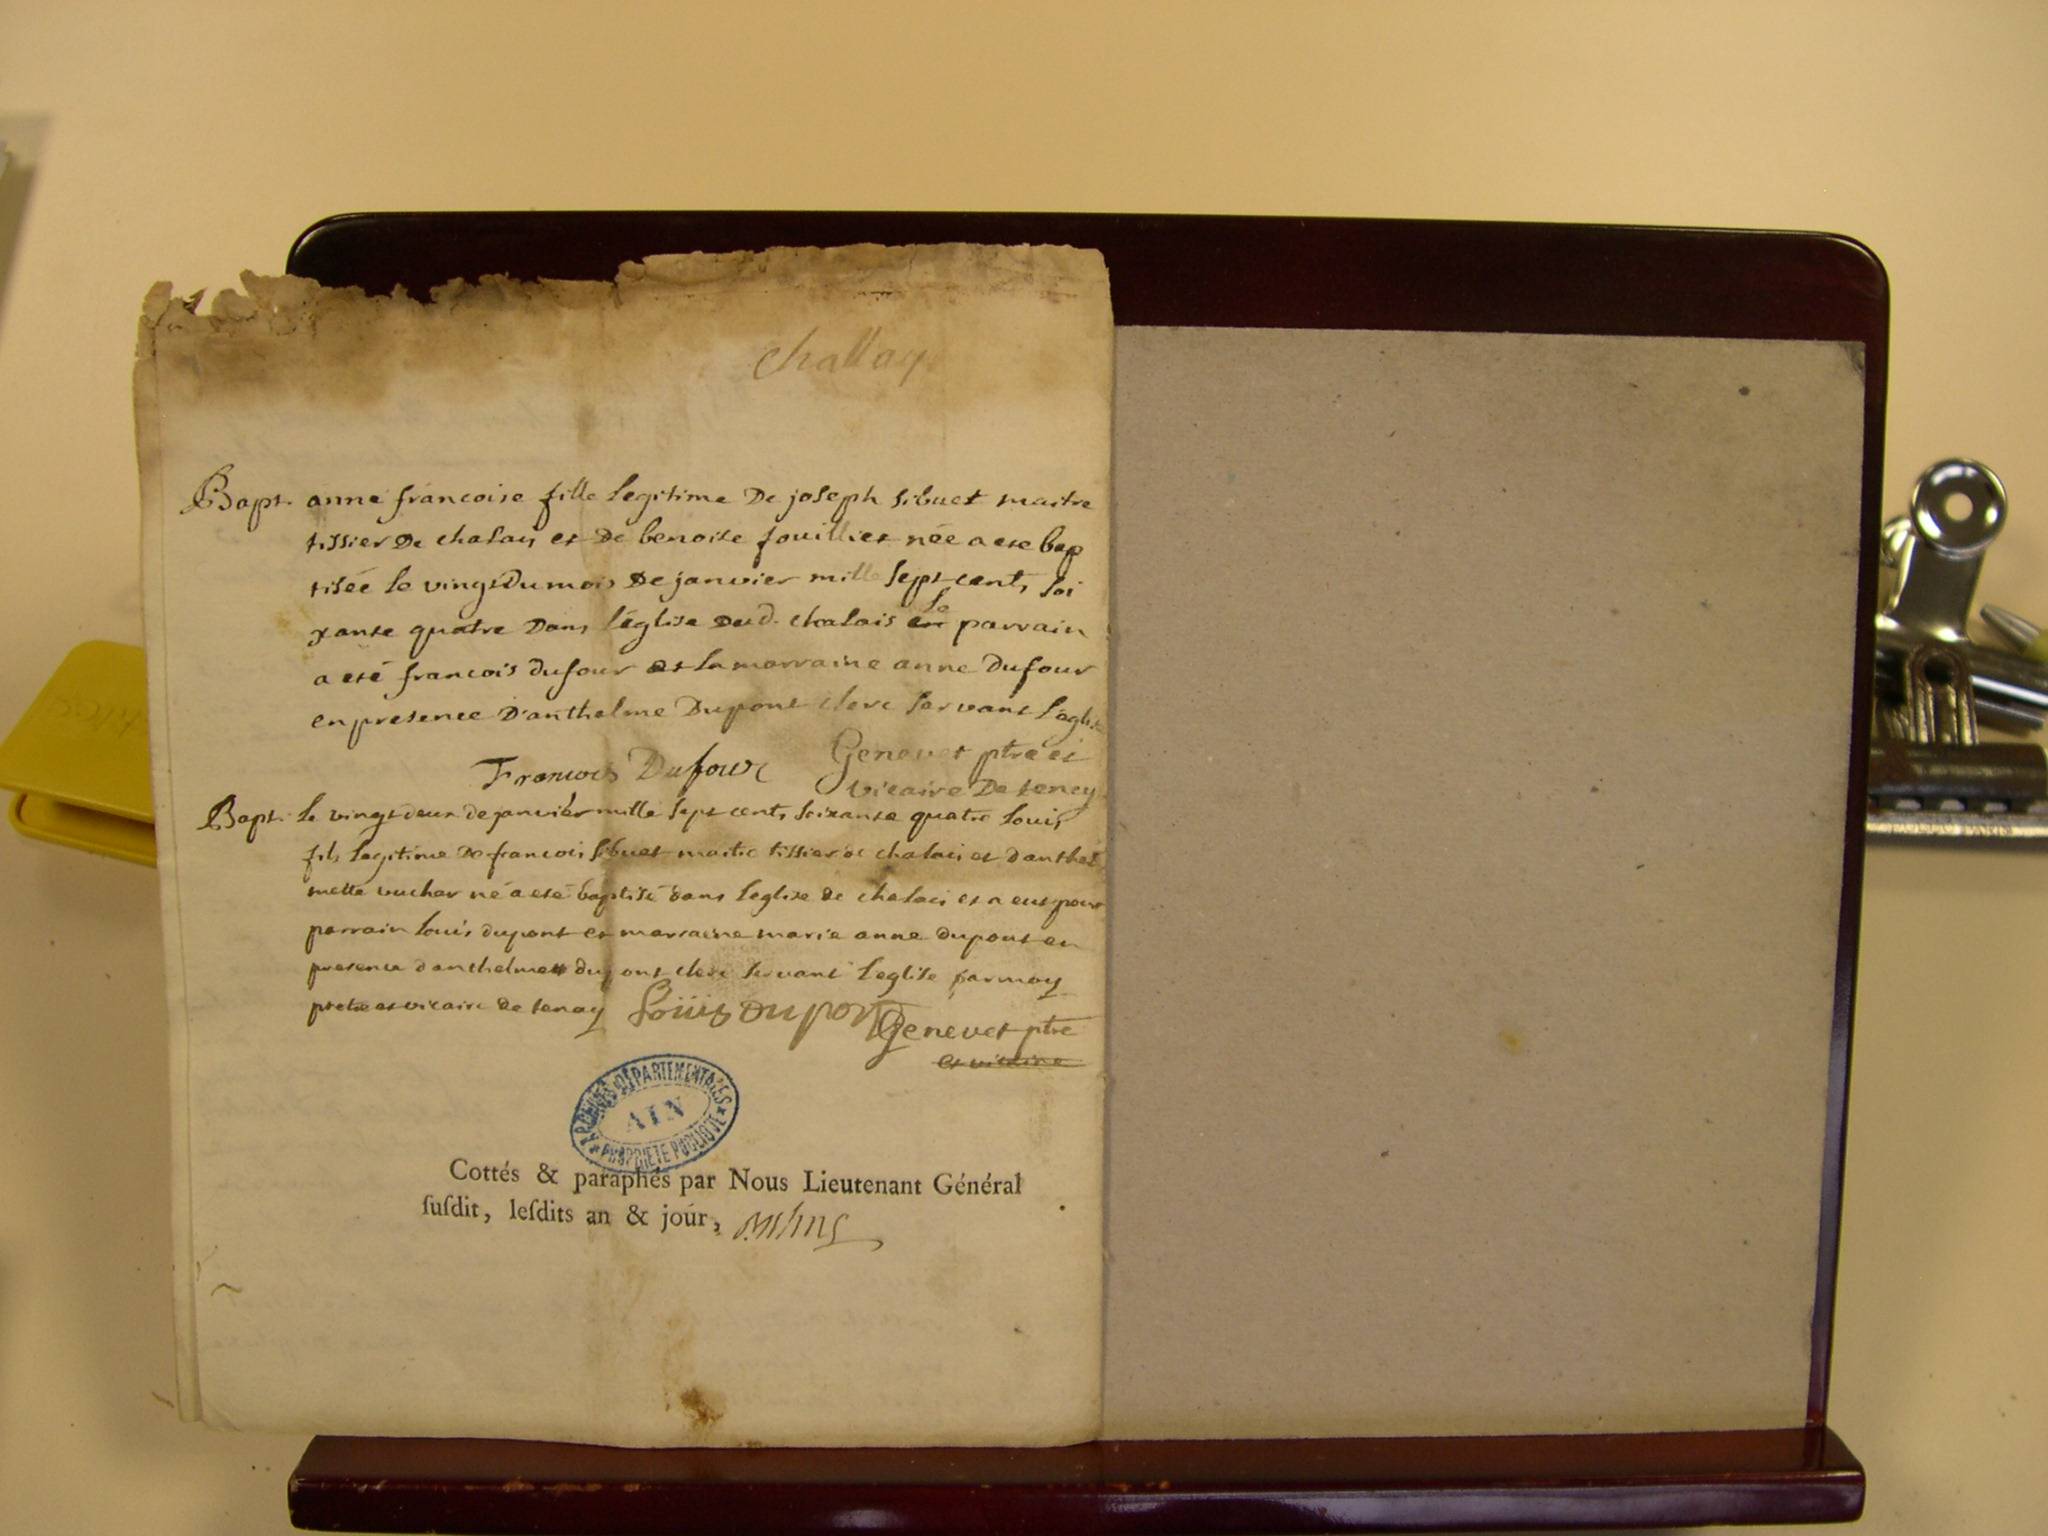 challay
Bapt. anne francoise fille legitime De joseph sibuet maitre
tissier De chalais et De benoite fouilliet née a eté bap
tisée le vingt Du mois De janvier mille sept cents soi
xante quatre Dans l'église Dud. chalais le parrain
a eté francois dufour et la marraine anne Dufour
en presence D'anthelme Dupont clerc servant l'eglise
Francois Dufour Genevet ptre et
vicaire De tenay
Bapt. le vingt deux de janvier mille sept cents soixante quatre louis
fils legitime De francois sibuet maitre tissier de chalais et d'anthel
mette vucher né a eté baptisé dans l'eglise de chalais et a eut pour
parrain louis dupont et marraine marie anne dupont en
presence d'anthelme dupont clerc servant l'eglise par moy
pretre et vicaire de tenay Loüis Dupont Genevet ptre
et vicaire
ARCHIVES DÉPARTEMENTALES
AIN
PROPRIÉTÉ PUBLIQUE
Cottés & paraphés par Nous Lieutenant Général
ſuſdit, leſdits an & jour,